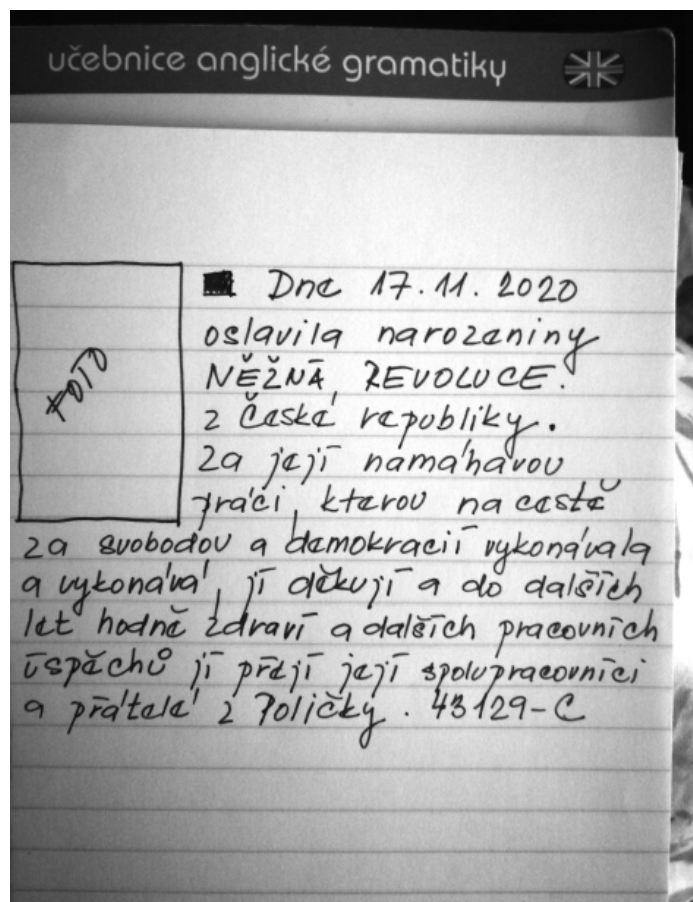 učebnice anglické gramatiky
FOTO
Dne 17.11.2020
oslavila narozeniny
NĚŽNÁ REVOLUCE.
z České republiky.
Za její namáhavou
práci, kterou na cestě
za svobodou a demokracií vykonávala
a vykonává, jí děkují a do dalších
let hodně zdraví a dalších pracovních
úspěchů jí přejí její spolupracovníci
a přátelé z Poličky. 43129-C